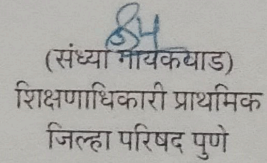 (संध्या गायकवाड)
शिक्षणाधिकारी प्राथमिक
जिल्हा परिषद पुणे